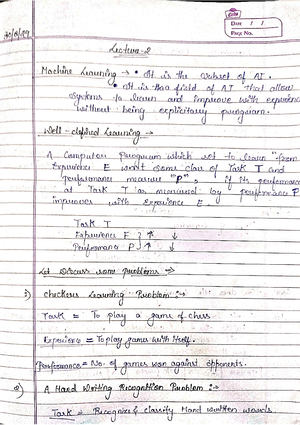 Date / /
Page No.
Lecture-2
Machine Learning → • It is the subset of AI.
• It is the field of AI that allow
systems to learn and improve with experience
without being explicitly program.
Well-defined Learning →
A Computer Program which set to learn "from
Experience E w.r.t some class of Task T and
Performance measure "P", if its performance
at Task T as measured by performance P
improves with Experience E.
Task T
Experience E } ↑ ↓
Performance P } ↑ ↓
Let Discuss some problems →
1) Checkers Learning Problem :→
Task = To play a game of chess
Experience = To play games with itself.
Performance = No. of games won against opponents.
2) A Hand Writing Recognition Problem :→
Task = Recognize & classify Hand written words